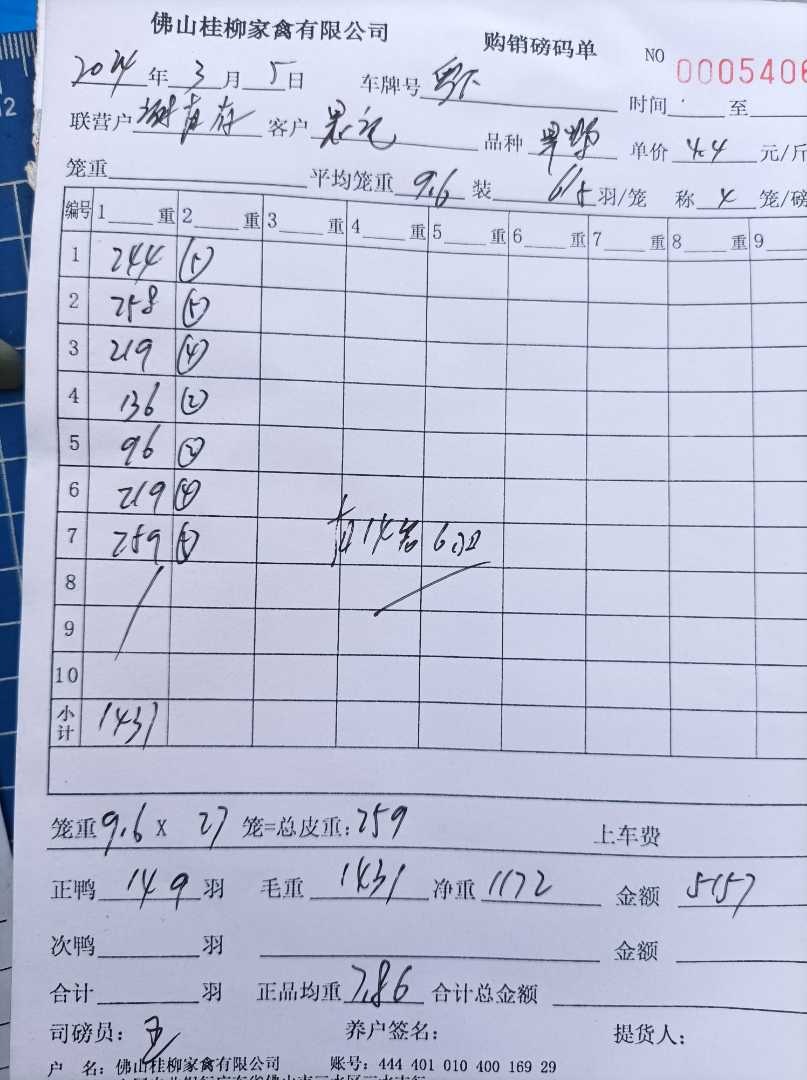 佛山桂柳家禽有限公司 购销磅码单 NO 0005406
2024年3月5日 车牌号 时间 至
联营户 客户 品种 单价 4.4 元/斤
笼重 平均笼重 9.6 装 6/5 羽/笼 称 4 笼/磅
编号 1 重 2 重 3 重 4 重 5 重 6 重 7 重 8 重 9
1 244 (5)
2 258 (5)
3 219 (4)
4 136 (2)
5 96 (2)
6 219 (4)
7 259 (5) 有14笼 6羽
8
9
10
小计 1431
笼重 9.6 X 27 笼=总皮重: 259 上车费
正鸭 149 羽 毛重 1431 净重 1172 金额 5157
次鸭 羽 金额
合计 羽 正品均重 7.86 合计总金额
司磅员: 王 养户签名: 提货人:
户 名: 佛山桂柳家禽有限公司 账号: 444 401 010 400 169 29